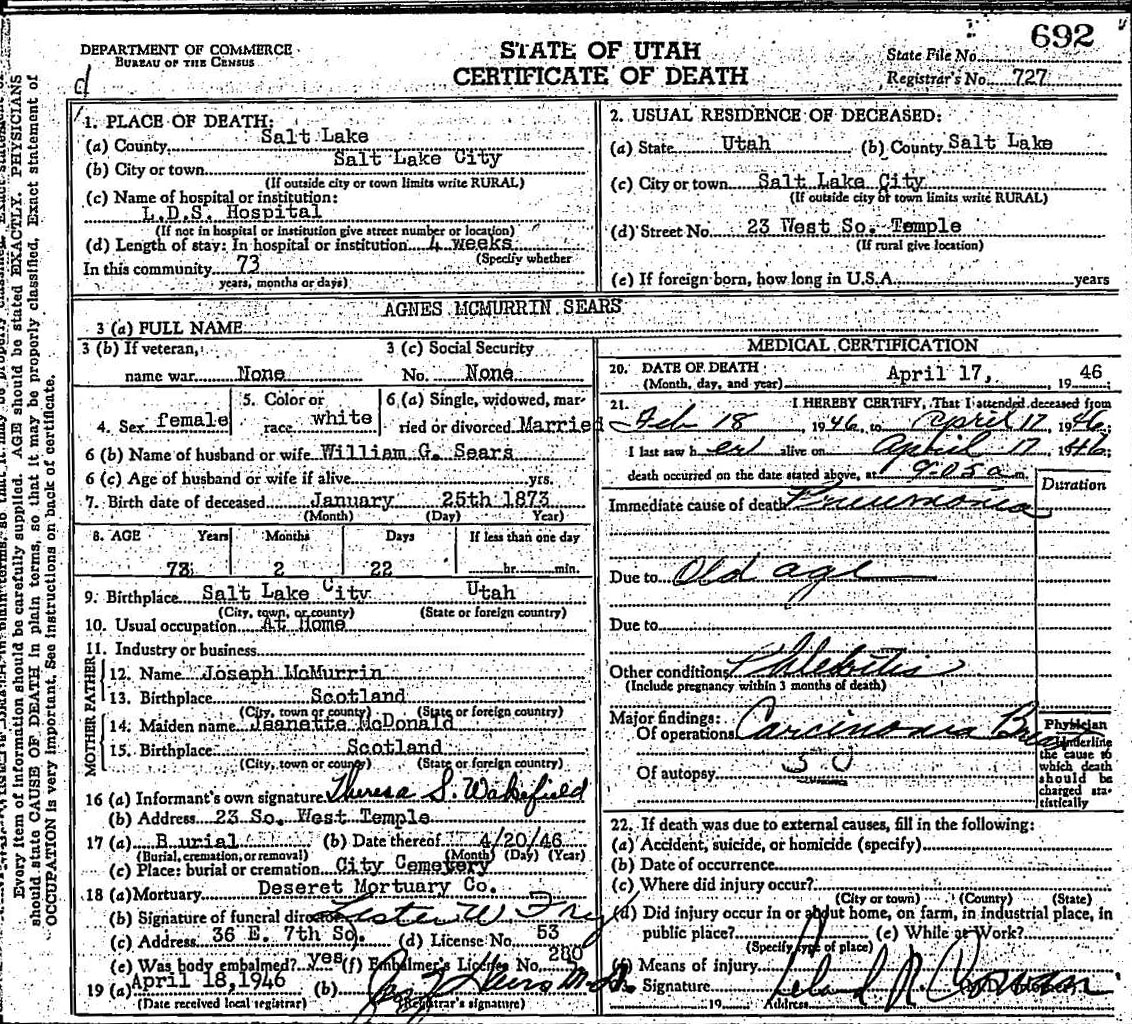 692
DEPARTMENT OF COMMERCE
BUREAU OF THE CENSUS
STATE OF UTAH
CERTIFICATE OF DEATH
State File No.
Registrar's No. 727
d
Every item of information should be carefully supplied. AGE should be stated EXACTLY. PHYSICIANS
should state CAUSE OF DEATH in plain terms, so that it may be properly classified. Exact statement of
OCCUPATION is very important. See instructions on back of certificate.
1. PLACE OF DEATH:
(a) County Salt Lake
(b) City or town Salt Lake City
(If outside city or town limits write RURAL)
(c) Name of hospital or institution:
L.D.S. Hospital
(If not in hospital or institution give street number or location)
(d) Length of stay: In hospital or institution 4 weeks
(Specify whether
In this community 73
years, months or days)
2. USUAL RESIDENCE OF DECEASED:
(a) State Utah (b) County Salt Lake
(c) City or town Salt Lake City
(If outside city or town limits write RURAL)
(d) Street No. 23 West So. Temple
(If rural give location)
(e) If foreign born, how long in U.S.A. years
AGNES MCMURRIN SEARS
3 (a) FULL NAME
3 (b) If veteran, 3 (c) Social Security
name war None No. None
4. Sex female 5. Color or race white 6 (a) Single, widowed, married or divorced Married
6 (b) Name of husband or wife William G. Sears
6 (c) Age of husband or wife if alive yrs.
7. Birth date of deceased January 25th 1873
(Month) (Day) Year)
8. AGE Years Months Days If less than one day
73 2 22 hr. min.
9. Birthplace Salt Lake City Utah
(City, town, or county) (State or foreign country)
10. Usual occupation At Home
11. Industry or business
FATHER
12. Name Joseph McMurrin
13. Birthplace Scotland
(City, town or county) (State or foreign country)
MOTHER
14. Maiden name Jeanette McDonald
15. Birthplace Scotland
(City, town or county) (State or foreign country)
16 (a) Informant's own signature Theresa S. Wakefield
(b) Address 23 So. West Temple
17 (a) Burial (b) Date thereof 4/20/46
(Burial, cremation, or removal) (Month) (Day) (Year)
(c) Place: burial or cremation City Cemetery
18 (a) Mortuary Deseret Mortuary Co.
(b) Signature of funeral director Lester W
(c) Address 36 E. 7th So. (d) License No. 53
(e) Was body embalmed? yes (f) Embalmer's License No. 280
19 (a) April 18, 1946 (b)
(Date received local registrar) (Registrar's signature)
MEDICAL CERTIFICATION
20. DATE OF DEATH:
(Month, day, and year) April 17, 1946
21. I HEREBY CERTIFY, That I attended deceased from
Feb 18 1946, to April 17 1946;
I last saw her alive on April 17 1946;
death occurred on the date stated above, at 9-05 a m.
Duration
Immediate cause of death Pneumonia
Due to Old age
Due to
Other conditions Phlebitis
(Include pregnancy within 3 months of death)
Major findings:
Of operations Carcinoma Breast
Of autopsy
Physician
Underline
the cause to
which death
should be
charged sta-
tistically
22. If death was due to external causes, fill in the following:
(a) Accident, suicide, or homicide (specify)
(b) Date of occurrence
(c) Where did injury occur?
(City or town) (County) (State)
(d) Did injury occur in or about home, on farm, in industrial place, in
public place? (e) While at Work?
(Specify type of place)
(f) Means of injury
Signature Leland R Cowan
19 Address